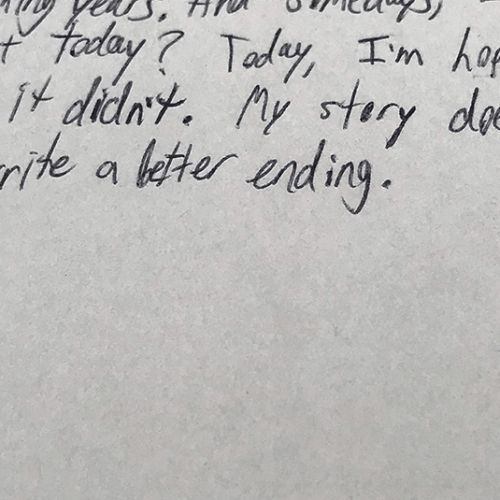 years. And somedays,
today? Today, I'm
it didn't. My story
a better ending.